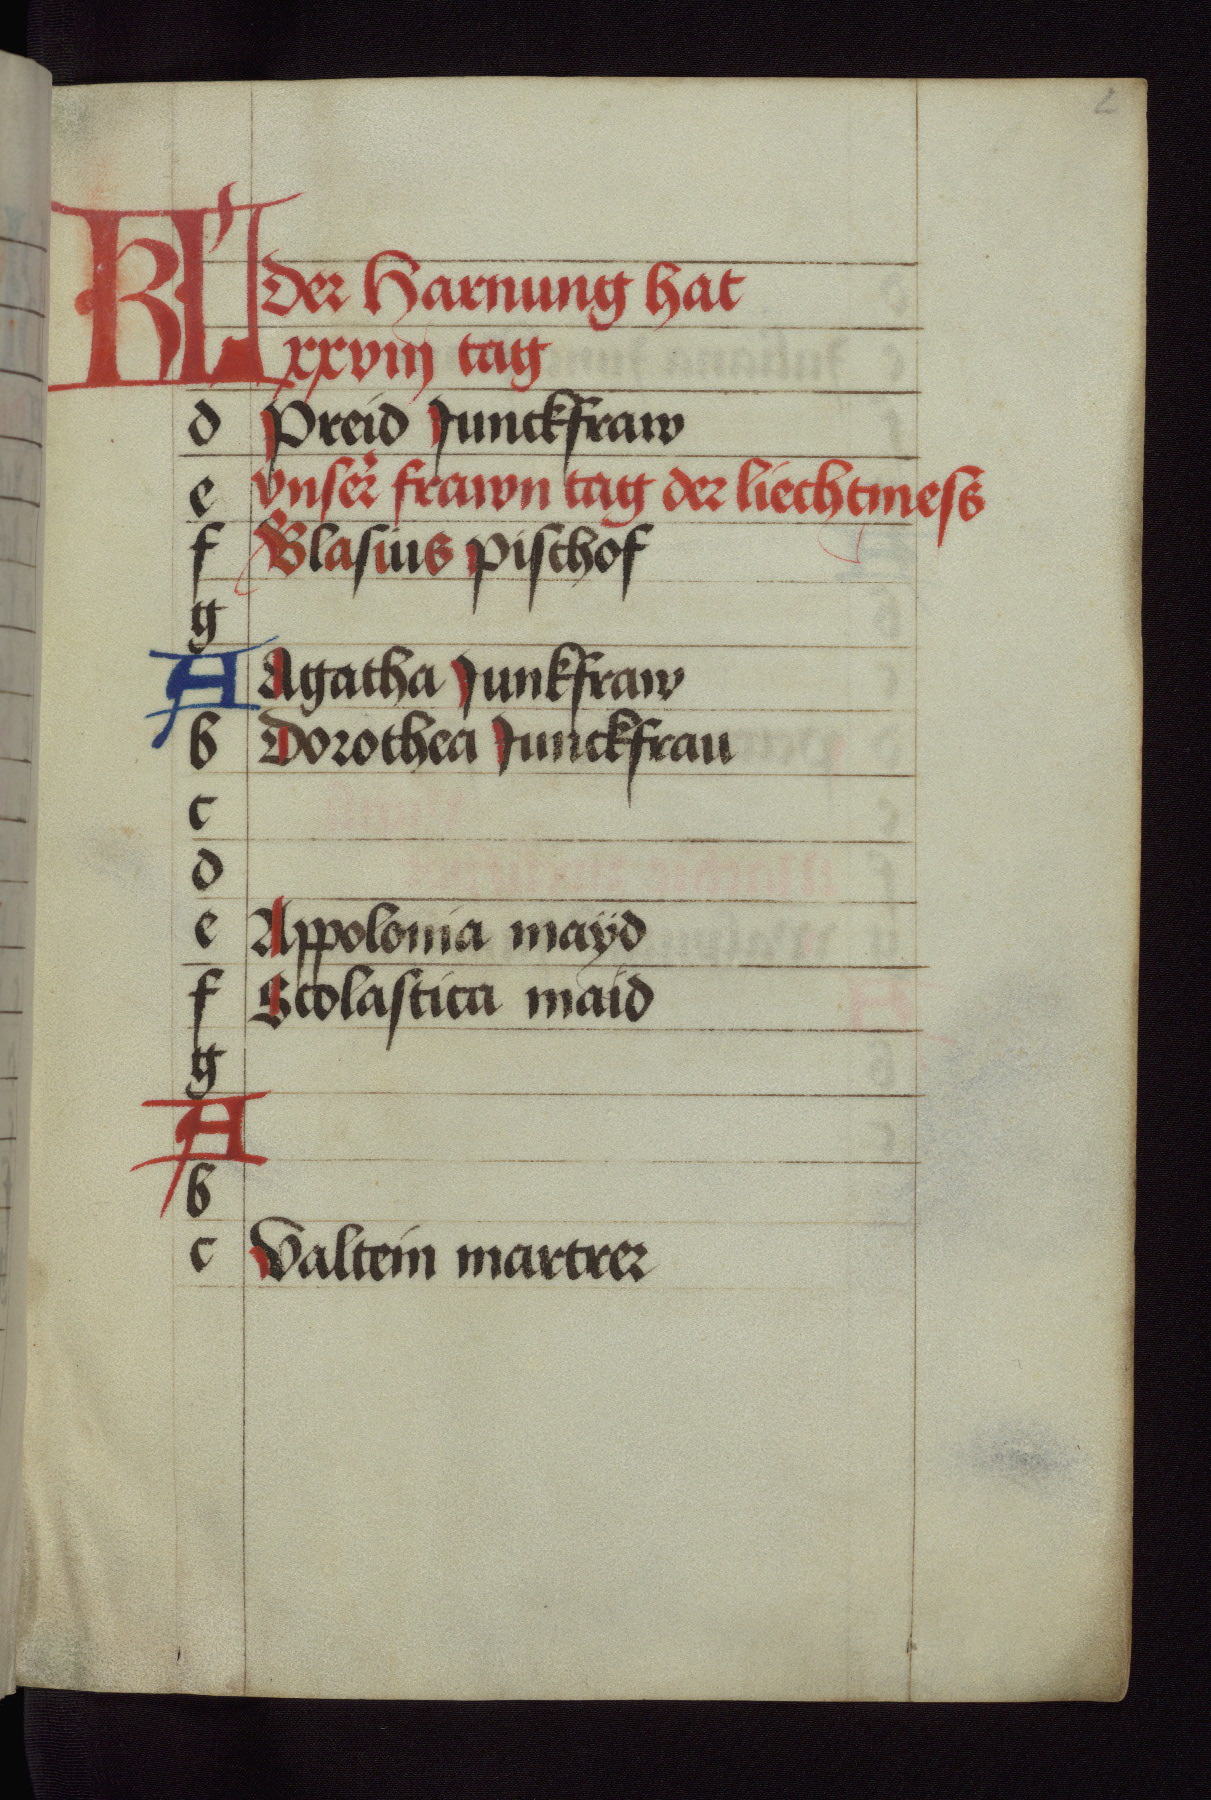 2
KL der Harnung hat
xxviij tag
d Preid Junckfraw
e vnser frawn tag der liechtmess
f Blasius pischof
g
A Agatha Junkfraw
b Dorothea Junckfrau
c
d
e Appolonia mayd
f Scolastica maid
g
A
b
c Valtein martrer